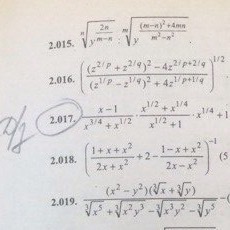 2.015. \sqrt[n]{y^{\frac{2n}{m-n}}} : \sqrt[m]{y^{\frac{(m-n)^2+4mn}{m^2-n^2}}}
2.016. \left(\frac{(z^{2/p}+z^{2/q})^2-4z^{2/p+2/q}}{(z^{1/p}-z^{1/q})^2+4z^{1/p+1/q}}\right)^{1/2}
2.017. \frac{x-1}{x^{3/4}+x^{1/2}} \cdot \frac{x^{1/2}+x^{1/4}}{x^{1/2}+1} \cdot x^{1/4}+1
2.018. \left(\frac{1+x+x^2}{2x+x^2}+2-\frac{1-x+x^2}{2x-x^2}\right)^{-1}(5
2.019. \frac{(x^2-y^2)(\sqrt[3]{x}+\sqrt[3]{y})}{\sqrt[3]{x^5}+\sqrt[3]{x^2y^3}-\sqrt[3]{x^3y^2}-\sqrt[3]{y^5}}-(